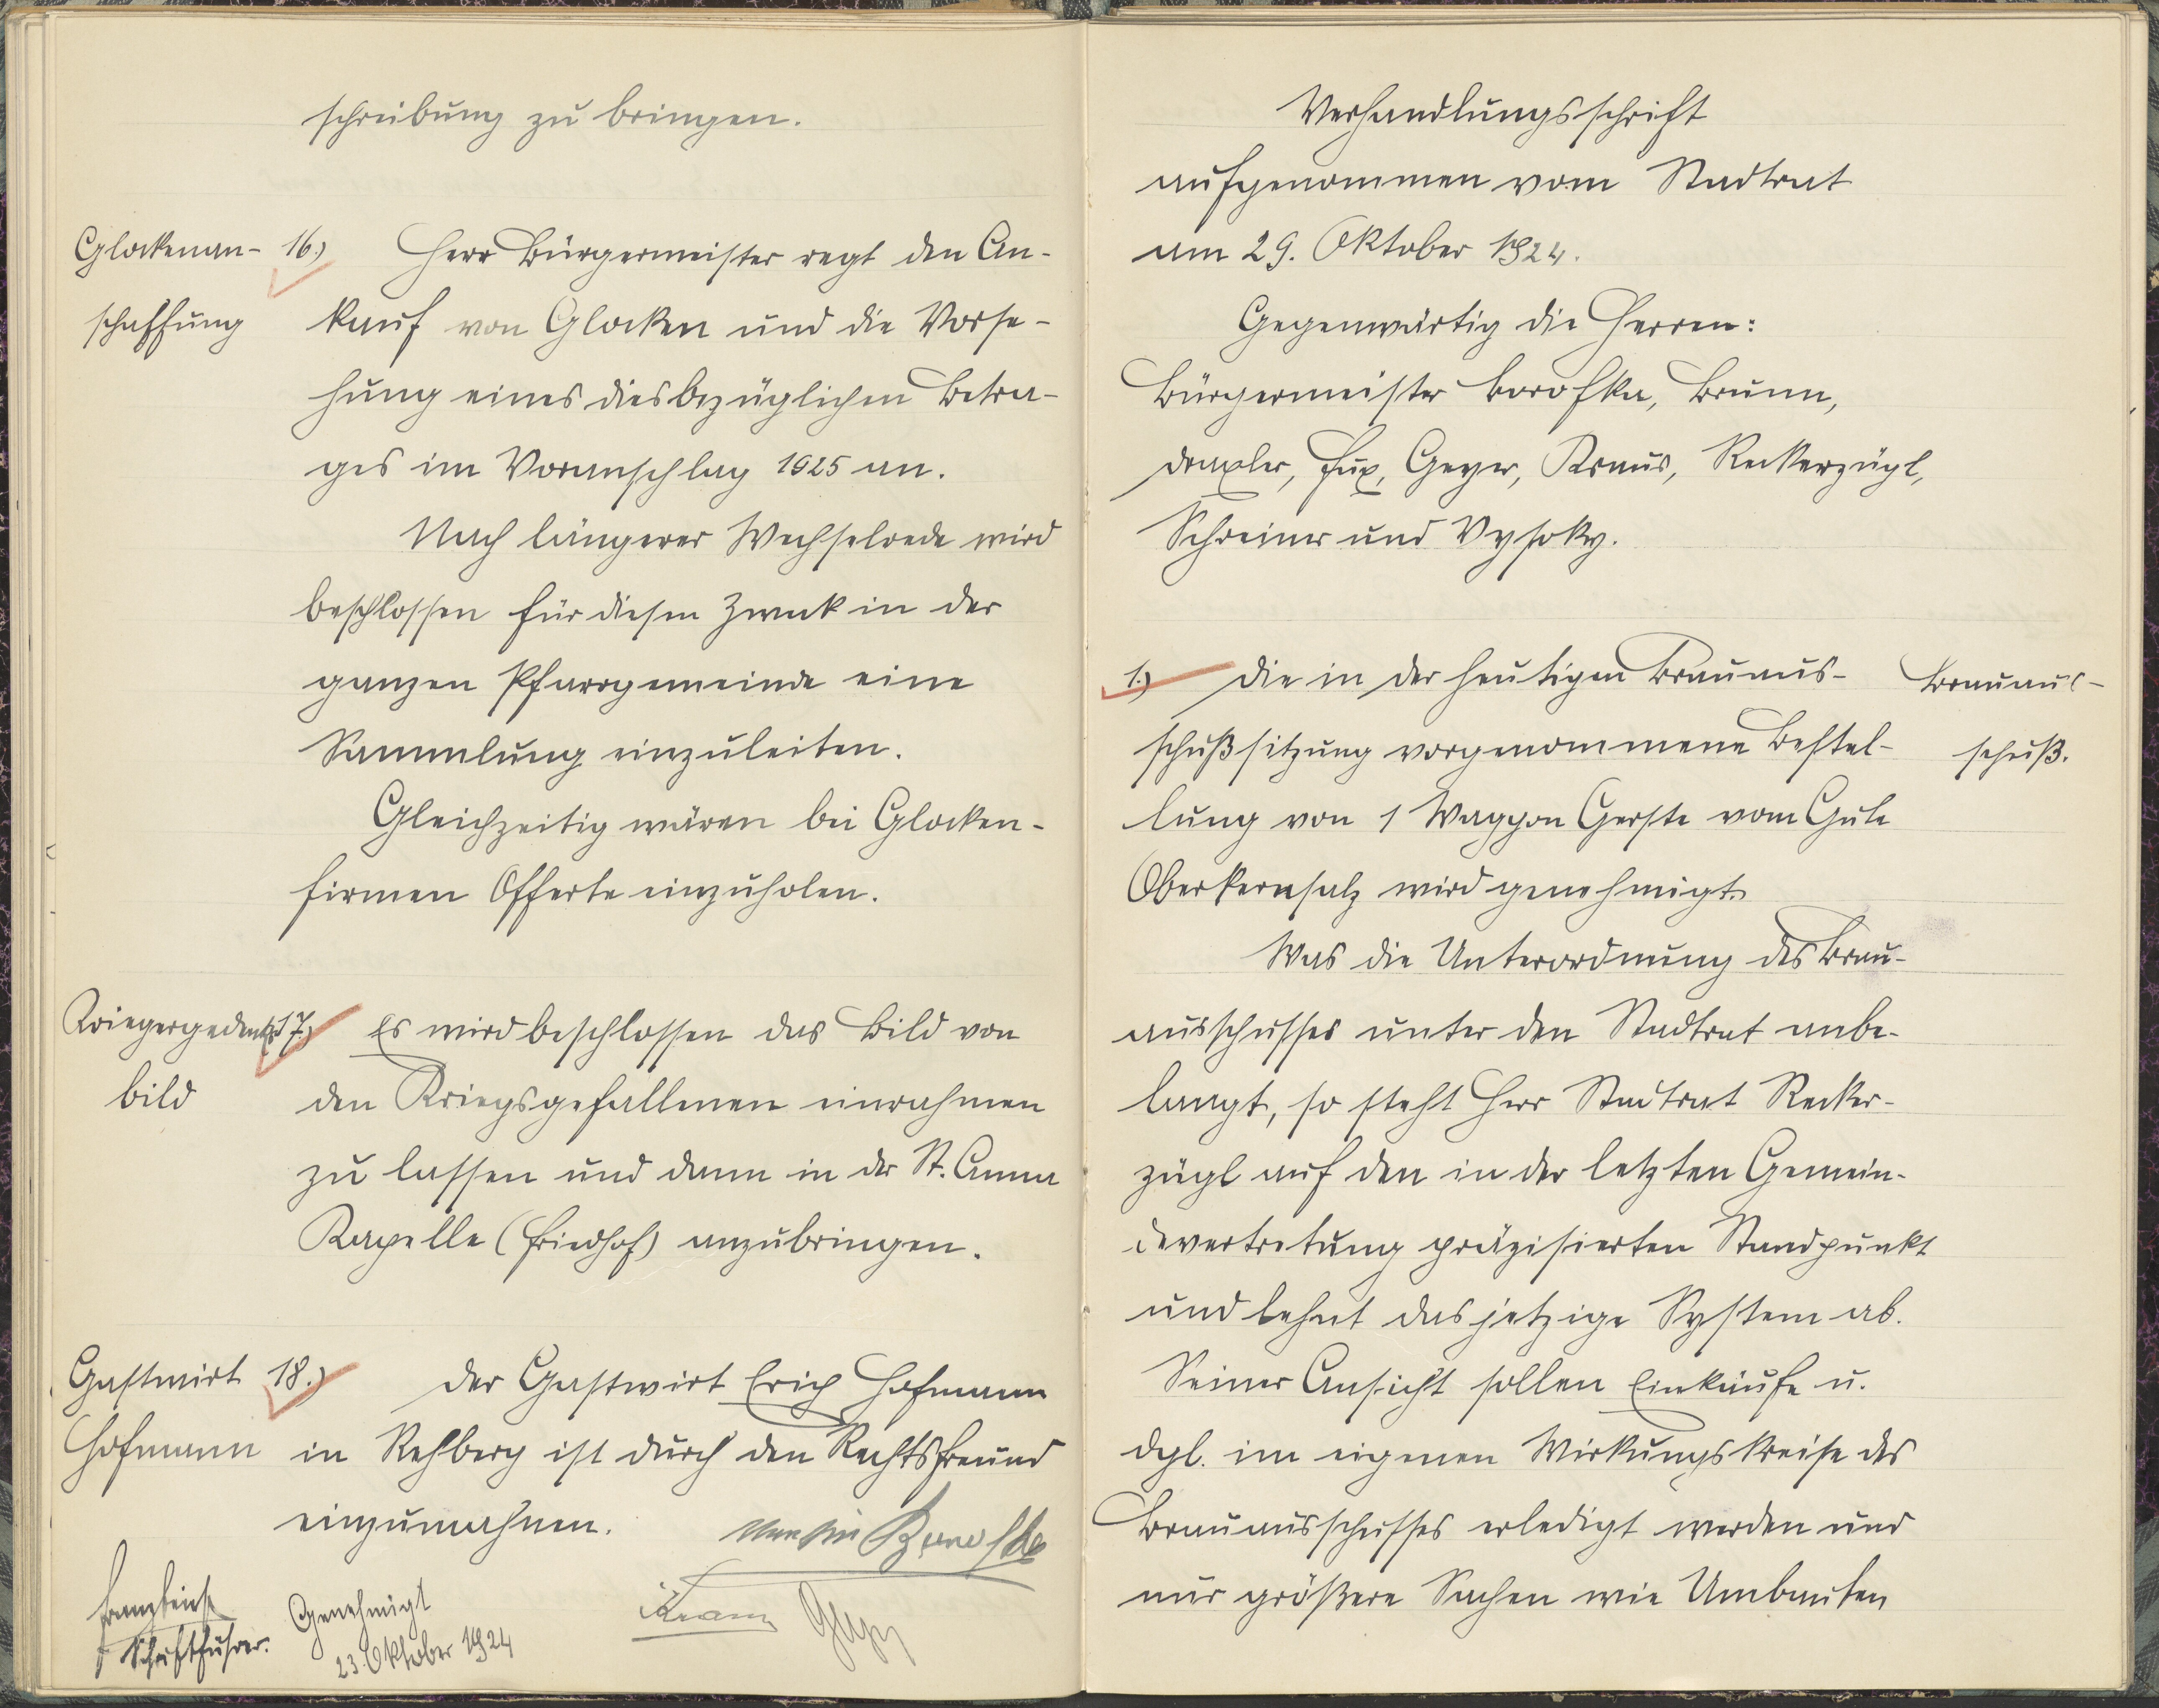 schreibung zu bringen.
Glockenan-
schaffung
16.) Herr Bürgermeister regt den An-
kauf von Glocken und die Vorse-
hung eines diesbezüglichen Betra-
ges im Voranschlag 1925 an.
Nach längerer Wechselrede wird
beschlossen für diesen Zweck in der
ganzen Pfarrgemeinde eine
Sammlung einzuleiten.
Gleichzeitig wären bei Glocken-
firmen Offerte einzuholen.
Kriegergedenk-
bild
17.) Es wird beschlossen das Bild von
den Kriegsgefallenen einrahmen
zu lassen und dann in der St. Anna
Kapelle (Friedhof) anzubringen.
Gastwirt
Hofmann
18.) Der Gastwirt Erich Hofmann
in Rehberg ist durch den Rechtsfreund
einzumahnen.
Borofka
Schriftführer.
Genehmigt
23. Oktober 1924
Kraus Geyer
Verhandlungsschrift
aufgenommen vom Stadtrat
am 29. Oktober 1924.
Gegenwärtig die Herren:
Bürgermeister Borofka, Brunn,
Draxler, Fux, Geyer, Kraus, Reckerzügl,
Schreiner und Vysoky.
1.) Die in der heutigen Brauaus-
schußsitzung vorgenommene Bestel-
lung von 1 Waggon Gerste vom Gute
wird genehmigt.
Brauaus-
schuß.
Was die Unterordnung des Brau-
ausschusses unter den Stadtrat anbe-
langt, so steht Herr Stadtrat Recker-
zügl auf den in der letzten Gemein-
devertretung präzisierten Standpunkt
und lehnt das jetzige System ab.
Seiner Ansicht sollen Einkäufe u.
dgl. im eigenen Wirkungskreise des
Brauausschusses erledigt werden und
nur größere Sachen wie Umbauten